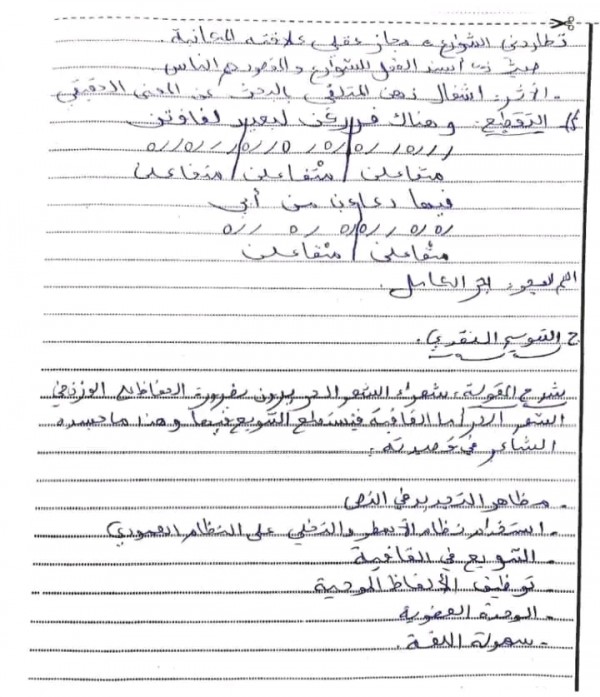 تطاردني الشوارع ← مجاز عقلي علاقته المكانية.
حيث أسند الفعل للشوارع والمقصود هم الناس
- الأثر: اشغال ذهن المتلقي بالبحث عن المعنى الحقيقي
التقطيع: وهناك في لبعيد لفافتن
متفاعلن / متْفاعلن / متفاعلن
فيها دعاءن من أبي
متْفاعلن / متْفاعلن
اسم البحر: بحر الكامل.
ج) التقويم النقدي.
شرح القولة: شعراء الشعر الحر يرون بضرورة الحفاظ على الوزن في
الشعر الحر أما القافية فيستطيع التنويع فيها وهذا ما جسده
الشاعر في قصيدته.
- مظاهر التجديد في النص
- استخدام نظام الأسطر والتخلي على النظام العمودي
- التنويع في القافية
- توظيف الألفاظ الموحية
- الوحدة العضوية
- سهولة اللغة.